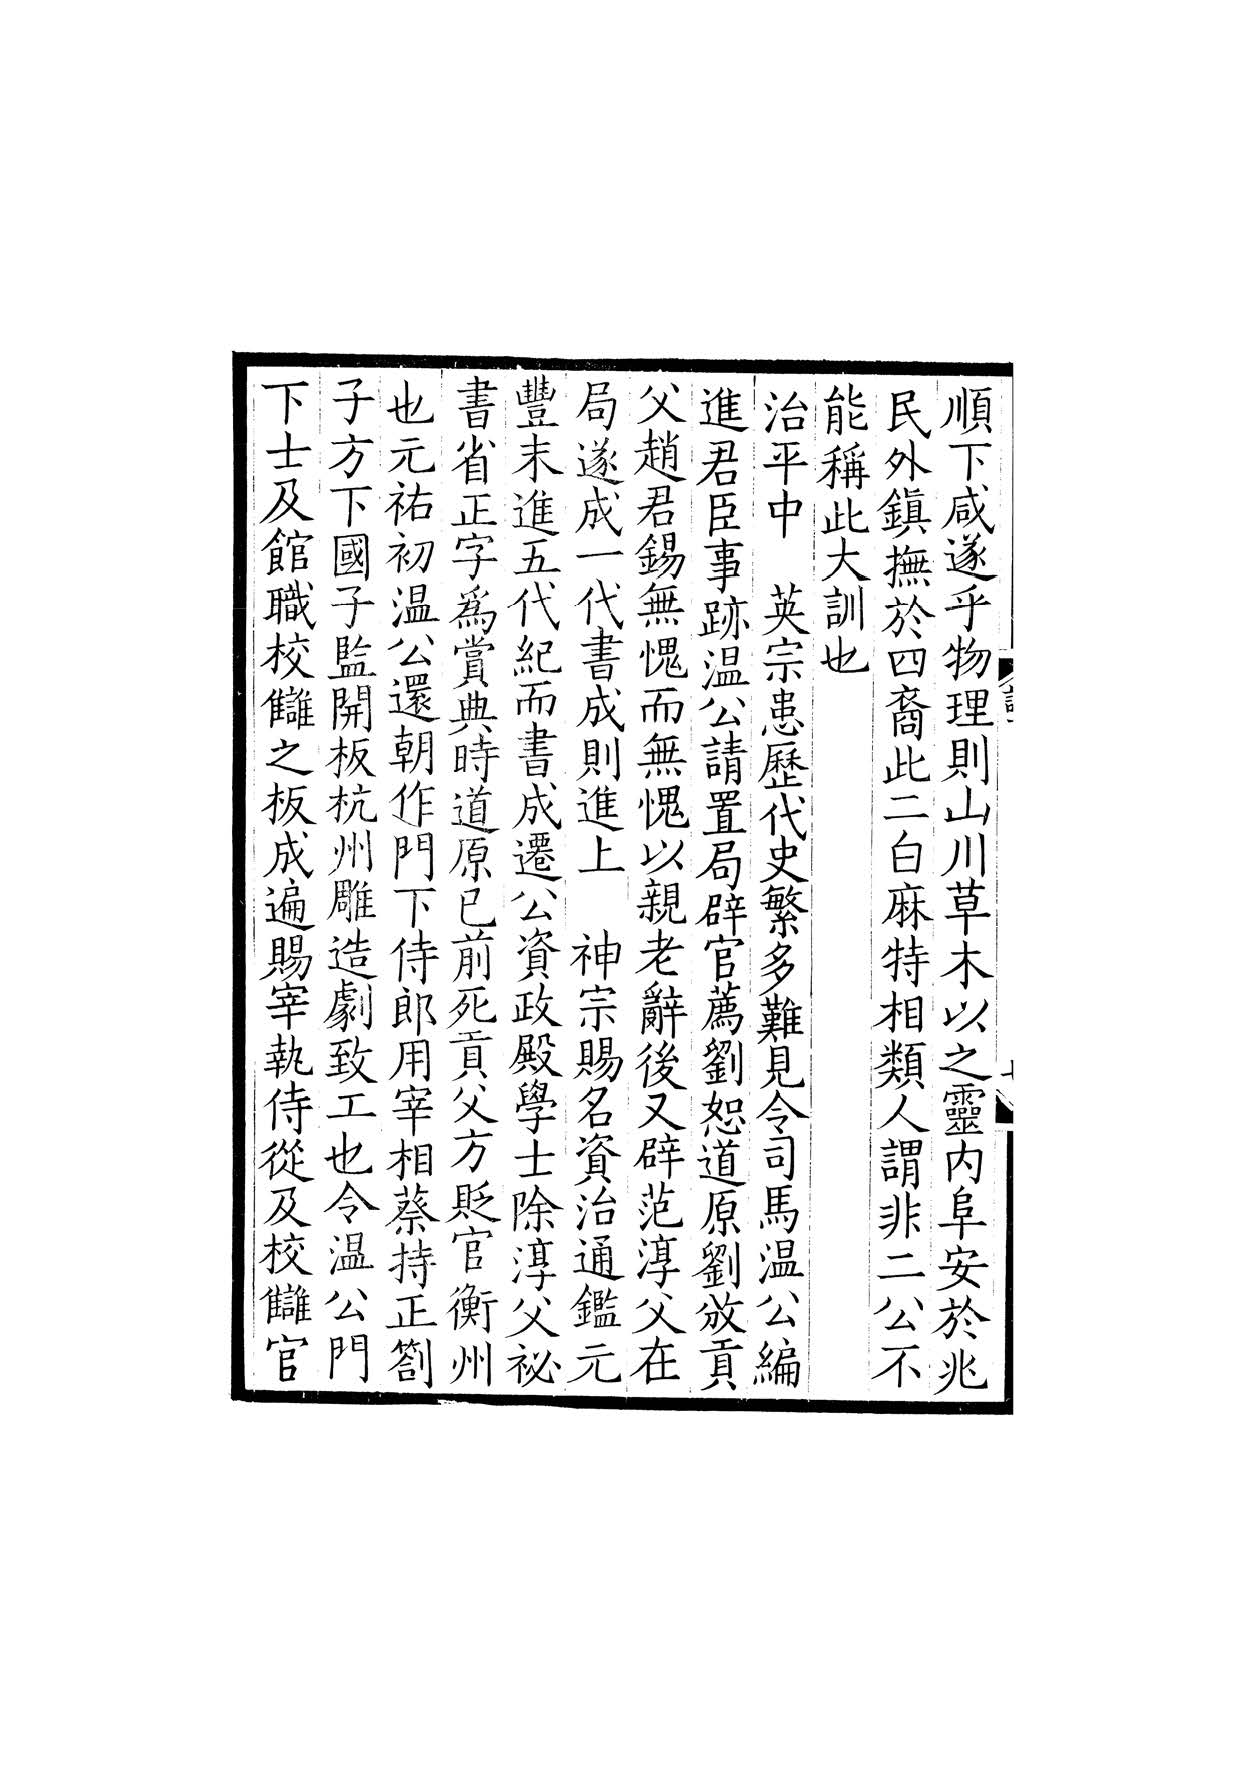 順下咸遂乎物理則山川草木以之靈内阜安於兆
民外鎮撫於四裔此二白麻特相類人謂非二公不
能稱此大訓也
治平中　英宗患歷代史繁多難見令司馬温公編
進君臣事跡温公請置局辟官薦劉恕道原劉攽貢
父趙君錫無愧而無愧以親老辭後又辟范淳父在
局遂成一代書成則進上　神宗賜名資治通鑑元
豐末進五代紀而書成遷公資政殿學士除淳父祕
書省正字爲賞典時道原已前死貢父方貶官衡州
也元祐初温公還朝作門下侍郎用宰相蔡持正劄
子方下國子監開板杭州雕造劇致工也令温公門
下士及館職校讎之板成遍賜宰執侍從及校讎官